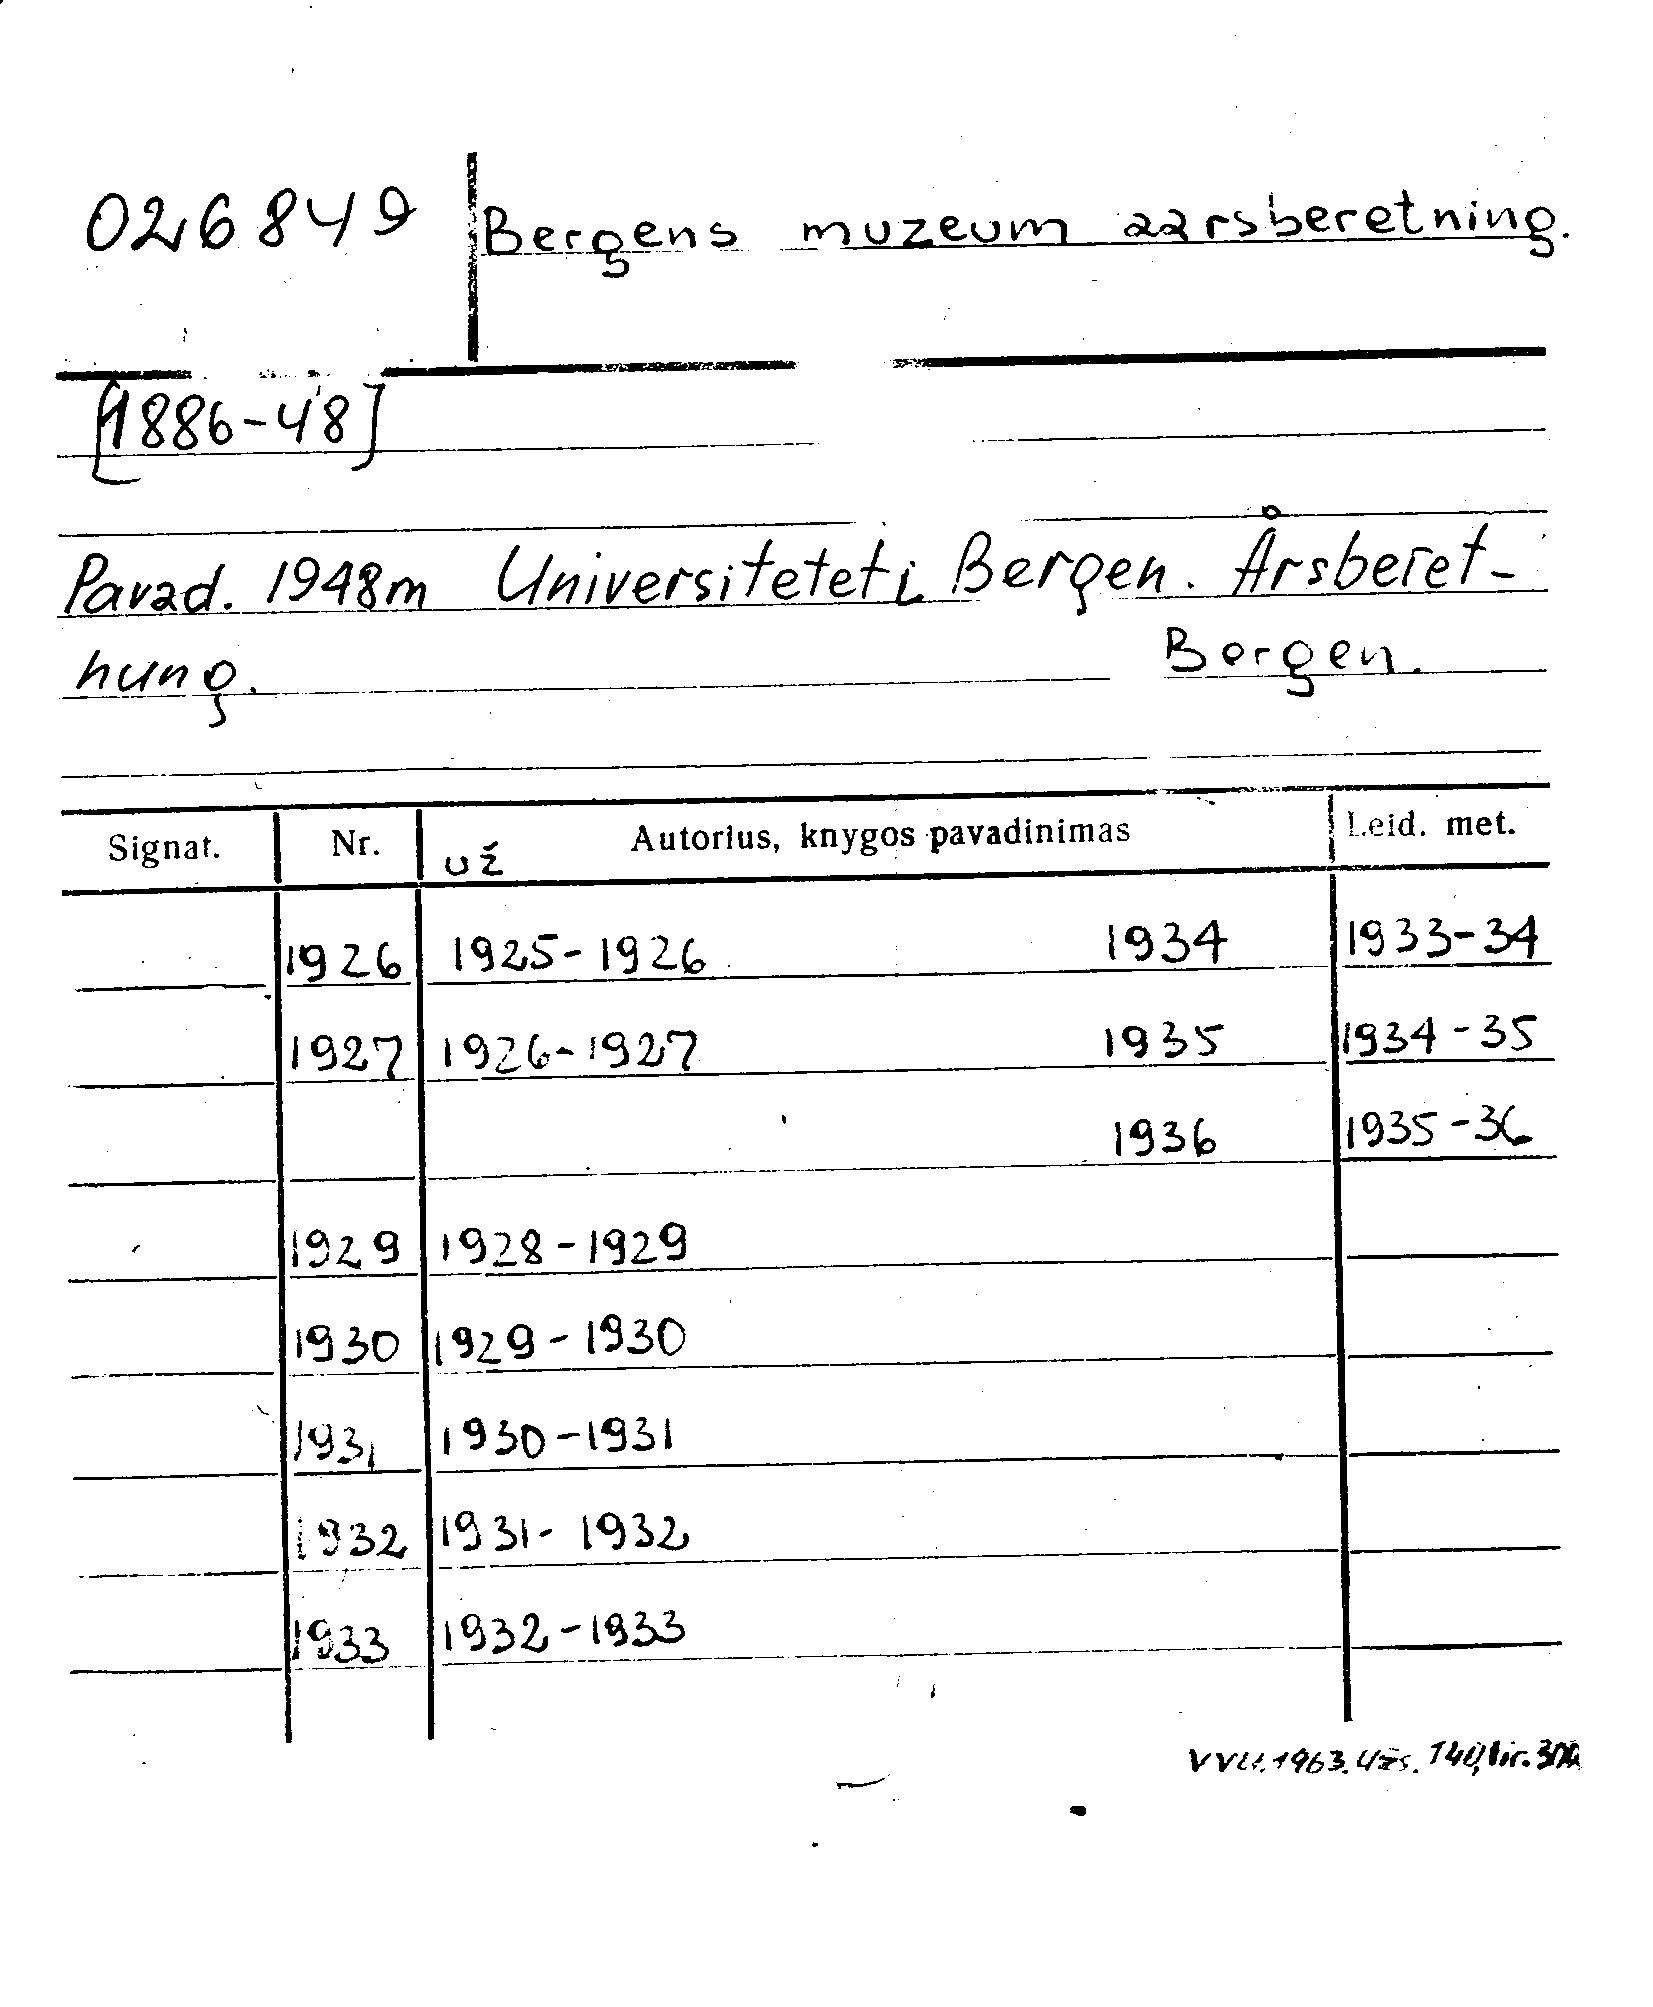 026849 Bergens muzeum aarsberetning.
[1886-48]
Pavad. 1948m Universitetet i Bergen. Årsberet-
nung. Bergen.
Signat. Nr. už Autorius, knygos pavadinimas Leid. met.
1926 1925-1926 1934 1933-34
1927 1926-1927 1935 1934-35
1936 1935-36
1929 1928-1929
1930 1929-1930
1931 1930-1931
1932 1931-1932
1933 1932-1933
VVU. 1963. Užs. 140, tir.